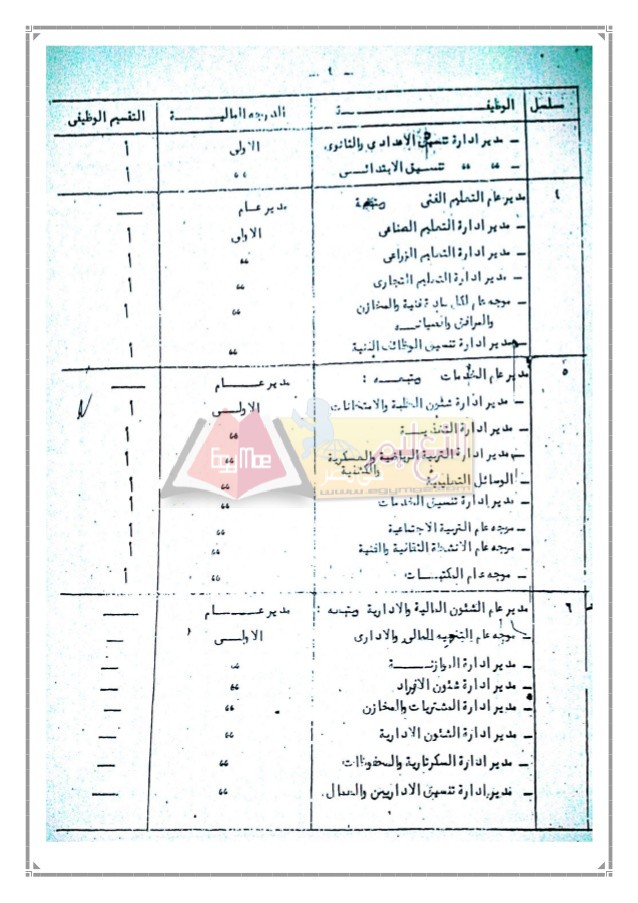 - ٤ -
مسلسل الوظيفـــــة الدرجه الماليـــــة التقسيم الوظيفى
- مدير ادارة تنسيق الاعدادي والثانوى الاولى أ
- " " تنسيق الابتدائــى " أ
٤ مدير عام التعليم الفنى مدير عام —
- مدير ادارة التعليم الصناعى الاولى أ
- مدير ادارة التعليم الزراعى " أ
- مدير ادارة التعليم التجارى " أ
- موجه عام لكل مادة فنية والمخازن " أ
والمرافق
- مدير ادارة تنسيق الوظائف الفنية " أ
٥ مدير عام الخدمات ويتبعــه : مدير عــام —
- مدير ادارة شئون الطلبة والامتحانات الاولــى أ
- مدير ادارة التغذيــة " أ
- مدير ادارة التربية الرياضية والعسكرية " أ
والكشفية
- الوسائل التعليمية " أ
- مدير ادارة تنسيق الخدمات " أ
- موجه عام التربية الاجتماعية " أ
- موجه عام الانشطة الثقافية والفنية " أ
- موجه عام المكتبــات " أ
٦ مدير عام الشئون المالية والادارية ويتبعه : مدير عــام —
- موجه عام التوجيه المالى والادارى الاولــى —
- مدير ادارة الموازنــة " —
- مدير ادارة شئون الافراد " —
- مدير ادارة المشتريات والمخازن " —
- مدير ادارة الشئون الادارية " —
- مدير ادارة السكرتارية والمحفوظات " —
- مدير ادارة تنسيق الاداريين والعمال. " —
EgyMoe
التعليم
فى مصر
www.egymoe.com